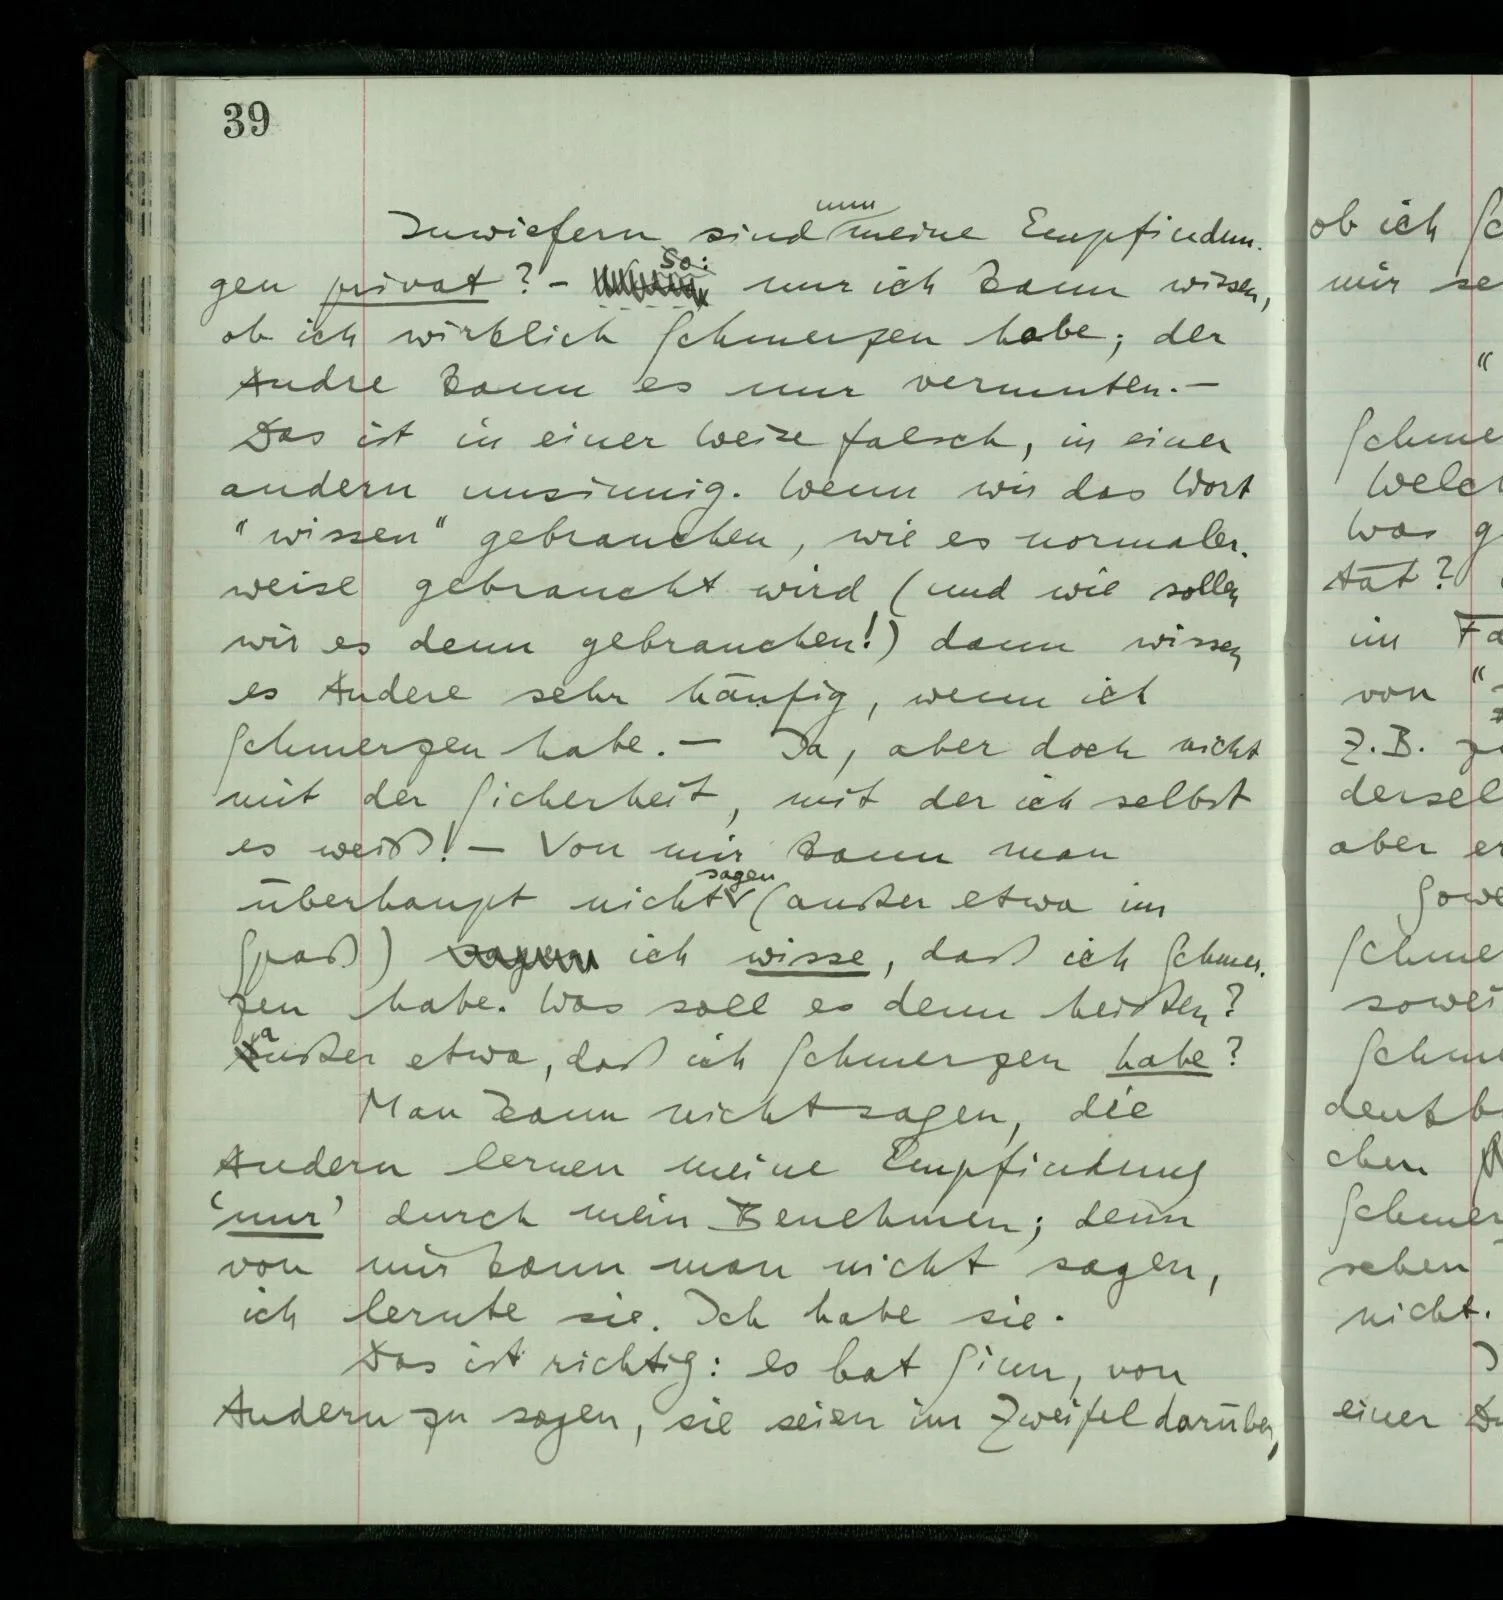 39
Inwiefern sind nun meine Empfindun-
gen privat? – So: nur ich kann wissen,
ob ich wirklich Schmerzen habe; der
Andre kann es nur vermuten. –
Das ist in einer Weise falsch, in einer
andern unsinnig. Wenn wir das Wort
"wissen" gebrauchen, wie es normaler-
weise gebraucht wird (und wie sollen
wir es denn gebrauchen!) dann wissen
es Andere sehr häufig, wenn ich
Schmerzen habe. – Ja, aber doch nicht
mit der Sicherheit, mit der ich selbst
es weiß! – Von mir kann man
überhaupt nicht sagen (außer etwa im
Spaß) sagen ich wisse, daß ich Schmer-
zen habe. Was soll es denn heißen?
außer etwa, daß ich Schmerzen habe?
Man kann nicht sagen, die
Andern lernen meine Empfindung
'nur' durch mein Benehmen; denn
von mir kann man nicht sagen,
ich lernte sie. Ich habe sie.
Das ist richtig: es hat Sinn, von
Andern zu sagen, sie seien im Zweifel darüber,
ob ich
mir
"
Was
tat?
im
von "
Z.B.
aber
nicht.
einer